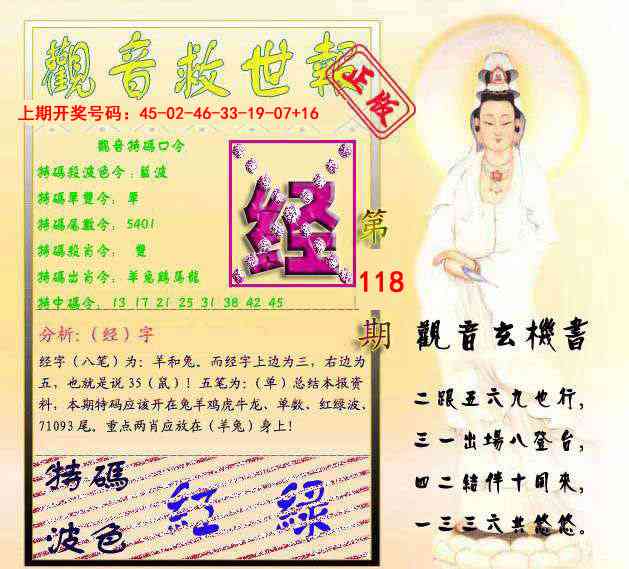 觀音救世報
正版
上期开奖号码：45-02-46-33-19-07+16
觀音特碼口令
特碼殺波色令：藍波
特碼單雙令： 單
特碼尾數令： 5401
特碼殺肖令： 雙
特碼出肖令：羊兔鷄馬龍
特中碼令： 13 17 21 25 31 38 42 45
经
第
118
期
分析:（经）字
经字（八笔）为：羊和兔。而经字上边为三，右边为
五，也就是说 35（鼠）！五笔为：（单）总结本报资
料，本期特码应该开在兔羊鸡虎牛龙，单数、红绿波、
71093 尾。重点两肖应放在（羊兔）身上！
特碼
波色
紅 綠
觀音玄機書
二跟五六九也行，
三一出場八登台，
四二結伴十回來，
一三三六共悠悠。